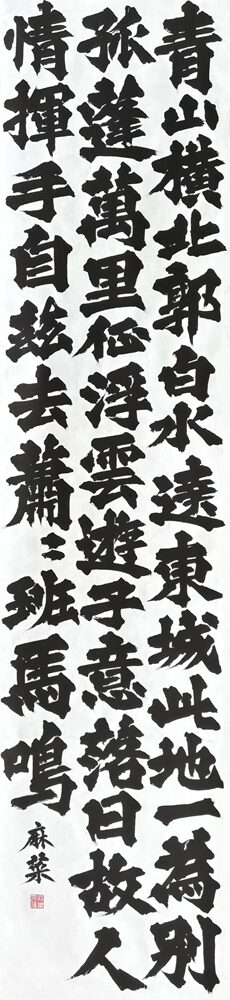 青山橫北郭白水遶東城此地一為別
孤蓬萬里征浮雲遊子意落日故人
情揮手自茲去蕭〻班馬鳴
麻